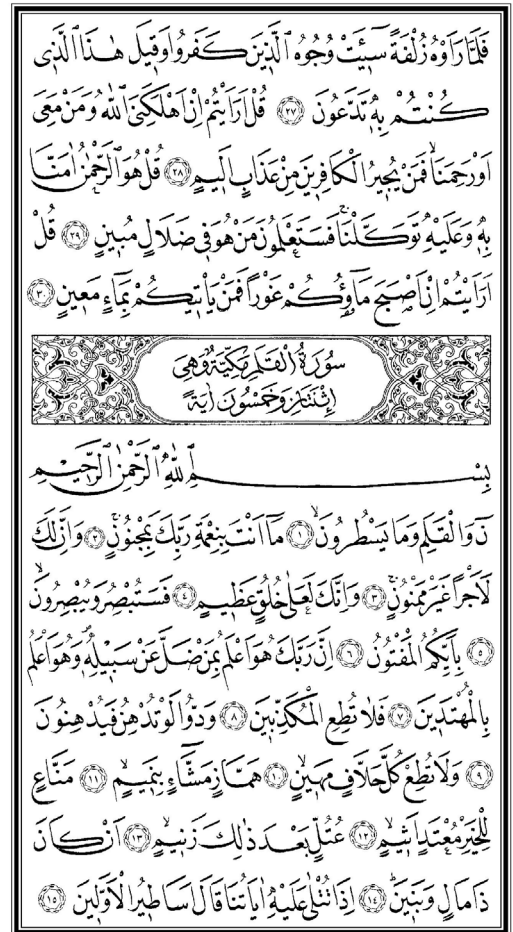 فَلَمَّا رَاَوْهُ زُلْفَةً سٖٓيـَٔتْ وُجُوهُ الَّذٖينَ كَفَرُوا وَقٖيلَ هٰذَا الَّذٖي
كُنْتُمْ بِهٖ تَدَّعُونَ ﴿٢٧﴾ قُلْ اَرَاَيْتُمْ اِنْ اَهْلَكَنِيَ اللّٰهُ وَمَنْ مَعِيَ
اَوْ رَحِمَنَاۙ فَمَنْ يُجٖيرُ الْكَافِرٖينَ مِنْ عَذَابٍ اَلٖيمٍ ﴿٢٨﴾ قُلْ هُوَ الرَّحْمٰنُ اٰمَنَّا
بِهٖ وَعَلَيْهِ تَوَكَّلْنَاۚ فَسَتَعْلَمُونَ مَنْ هُوَ فٖي ضَلَالٍ مُبٖينٍ ﴿٢٩﴾ قُلْ
اَرَاَيْتُمْ اِنْ اَصْبَحَ مَٓاؤُ۬كُمْ غَوْرًا فَمَنْ يَاْتٖيكُمْ بِمَٓاءٍ مَعٖينٍ ﴿٣٠﴾
سُورَةُ الْقَلَمِ مَكِّيَّةٌ وَهِيَ
اِثْنَتَانِ وَخَمْسُونَ اٰيَةً
بِسْمِ اللّٰهِ الرَّحْمٰنِ الرَّحٖيمِ
نٓ وَالْقَلَمِ وَمَا يَسْطُرُونَۙ ﴿١﴾ مَٓا اَنْتَ بِنِعْمَةِ رَبِّكَ بِمَجْنُونٍۚ ﴿٢﴾ وَاِنَّ لَكَ
لَاَجْرًا غَيْرَ مَمْنُونٍۚ ﴿٣﴾ وَاِنَّكَ لَعَلٰى خُلُقٍ عَظٖيمٍ ﴿٤﴾ فَسَتُبْصِرُ وَيُبْصِرُونَۙ
﴿٥﴾ بِاَيِّكُمُ الْمَفْتُونُ ﴿٦﴾ اِنَّ رَبَّكَ هُوَ اَعْلَمُ بِمَنْ ضَلَّ عَنْ سَبٖيلِهٖࣕ وَهُوَ اَعْلَمُ
بِالْمُهْتَدٖينَ ﴿٧﴾ فَلَا تُطِعِ الْمُكَذِّبٖينَ ﴿٨﴾ وَدُّوا لَوْ تُدْهِنُ فَيُدْهِنُونَ
﴿٩﴾ وَلَا تُطِعْ كُلَّ حَلَّافٍ مَهٖينٍۙ ﴿١٠﴾ هَمَّازٍ مَشَّٓاءٍ بِنَمٖيمٍۙ ﴿١١﴾ مَنَّاعٍ
لِلْخَيْرِ مُعْتَدٍ اَثٖيمٍۙ ﴿١٢﴾ عُتُلٍّ بَعْدَ ذٰلِكَ زَنٖيمٍۙ ﴿١٣﴾ اَنْ كَانَ
ذَا مَالٍ وَبَنٖينَۜ ﴿١٤﴾ اِذَا تُتْلٰى عَلَيْهِ اٰيَاتُنَا قَالَ اَسَاطٖيرُ الْاَوَّلٖينَ ﴿١٥﴾